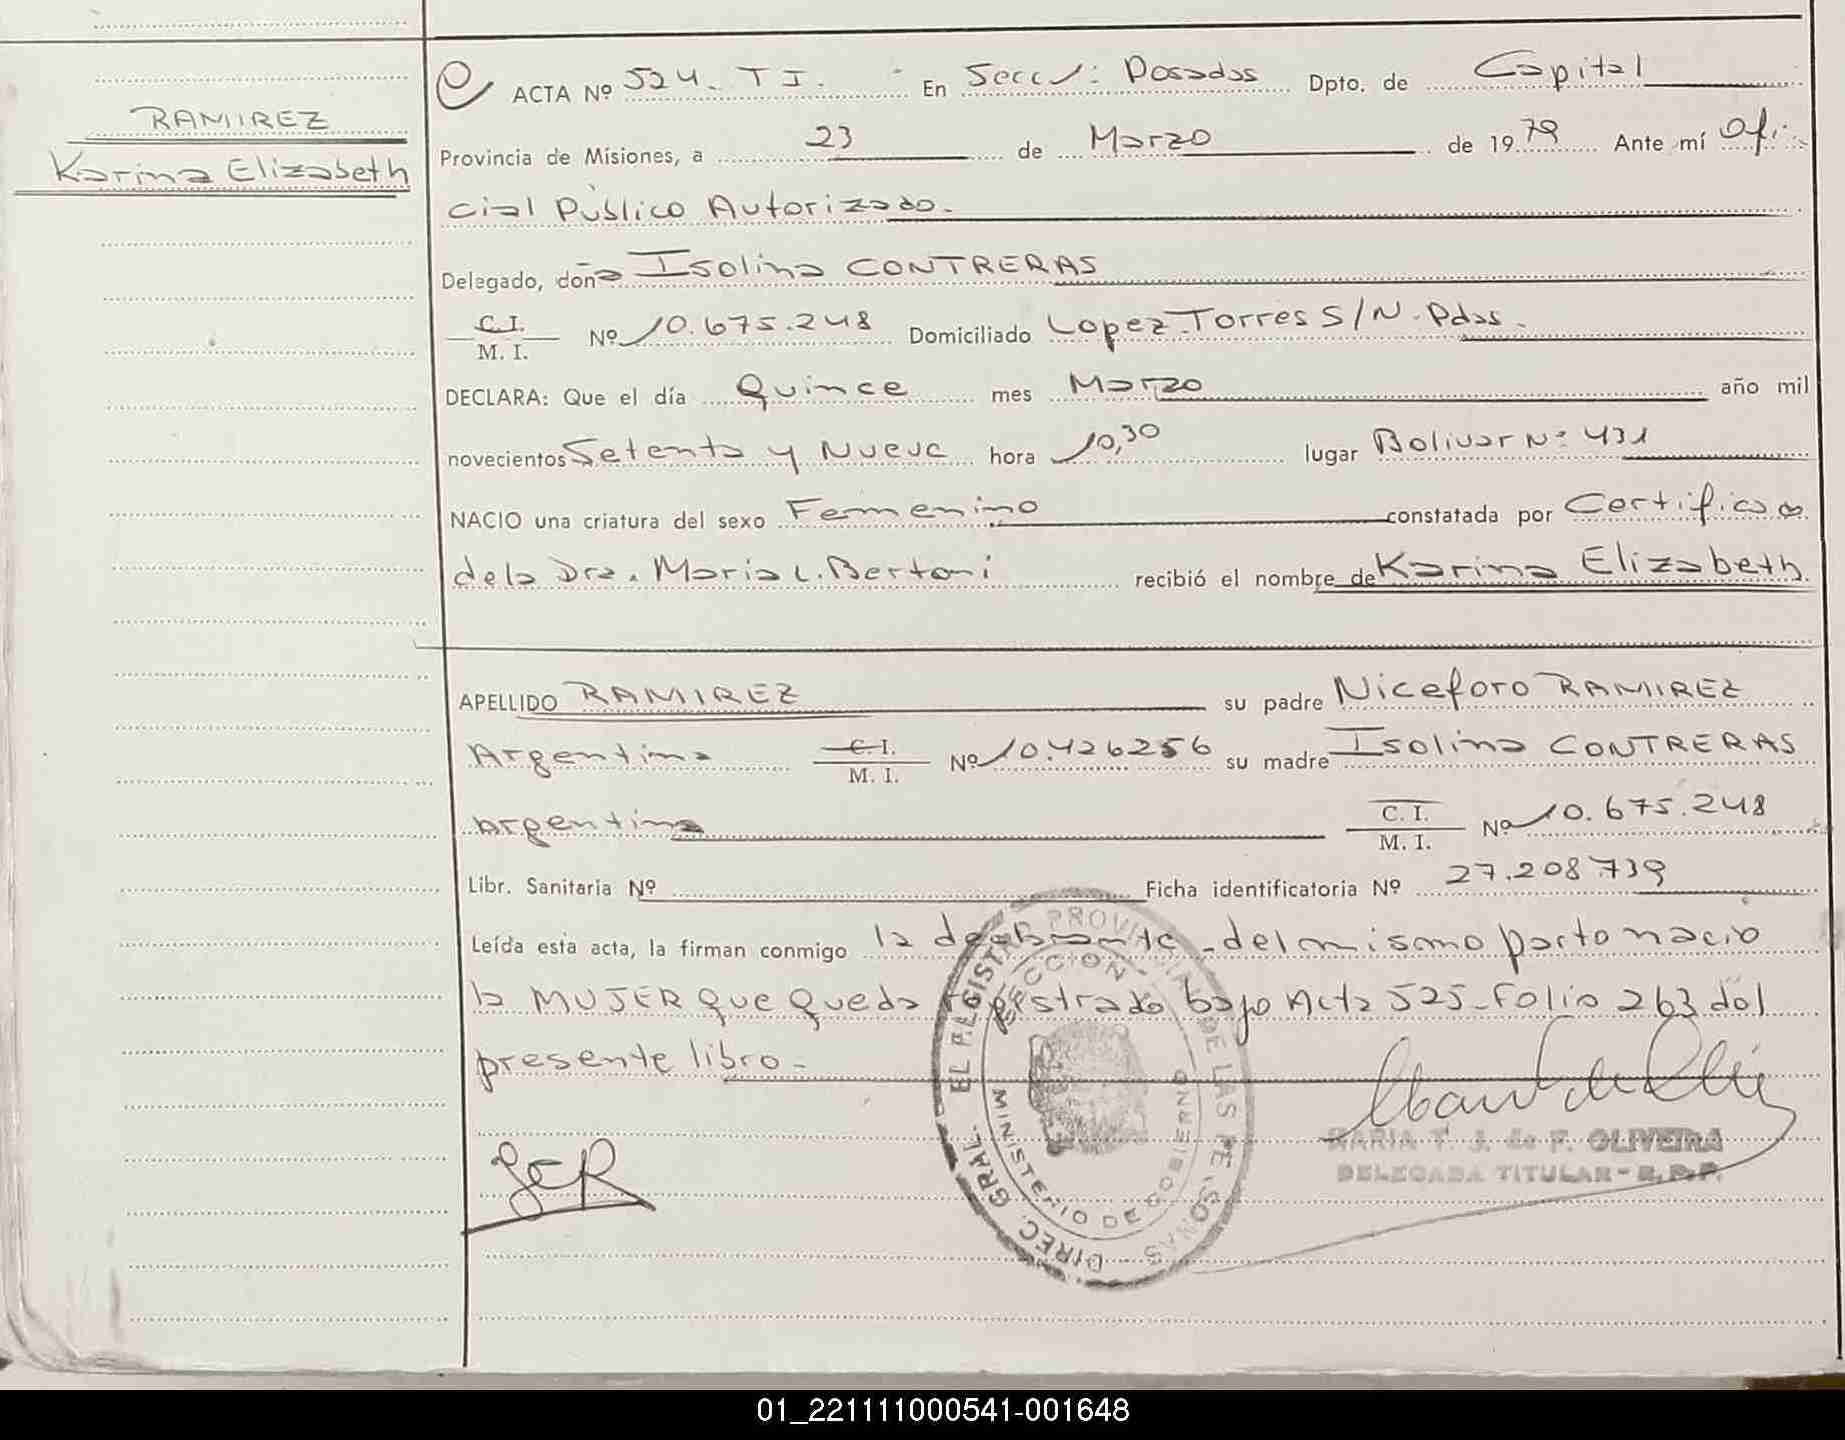 RAMIREZ
Karina Elizabeth
ACTA Nº 524. T I. En Secc: Posadas Dpto. de Capital
Provincia de Misiones, a 23 de Marzo de 1979 Ante mí Ofi
cial Público Autorizado.
Delegado, doña Isolina CONTRERAS
C.I. / M. I. Nº 10.675.248 Domiciliado Lopez Torres S/N. Pdas.
DECLARA: Que el día Quince mes Marzo año mil
novecientos Setenta y Nueve hora 10,30 lugar Bolivar Nº 431
NACIO una criatura del sexo Femenino constatada por Certificado
de la Dra. Maria L. Bertoni recibió el nombre de Karina Elizabeth
APELLIDO RAMIREZ su padre Niceforo RAMIREZ
Argentina C.I. / M. I. Nº 10.426256 su madre Isolina CONTRERAS
Argentina C. I. / M. I. Nº 10.675.248
Libr. Sanitaria Nº Ficha identificatoria Nº 27.208.739
Leída esta acta, la firman conmigo la declarante - del mismo parto nacio
la MUJER que queda registrado bajo Acta 525 - Folio 263 del
presente libro -
DIREC. GRAL. EL REGISTRO PROVINCIAL DE LAS PERSONAS
DIRECCION
MINISTERIO DE GOBIERNO
MARIA T. J. de F. OLIVEIRA
DELEGADA TITULAR - R. P. P.
01_221111000541-001648